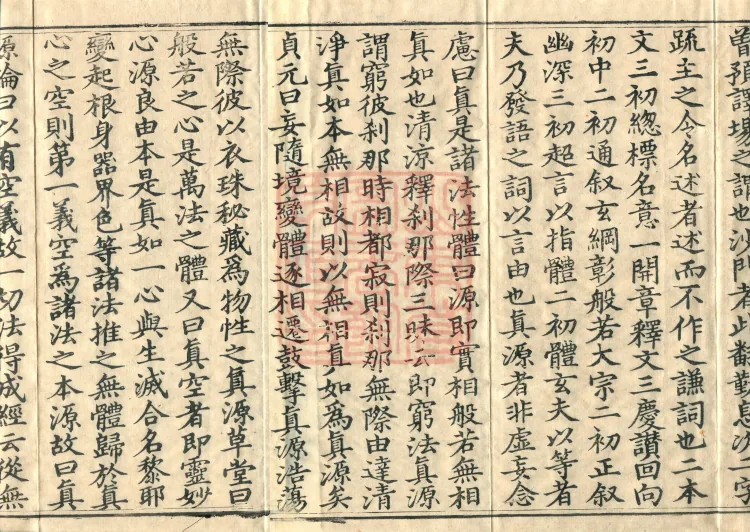 首預譯場之謂也沙門者此翻勤息次一字
疏主之令名述者述而不作之謙詞也二本
文三初總標名意一開章釋文三慶讚回向
初中二初通叙玄綱彰般若大宗二初正叙
幽深三初超言以指體二初體玄夫以等者
夫乃發語之詞以言由也真源者非虛妄念
慮曰眞是諸法性體曰源即實相般若無相
眞如也清涼釋刹那際三昧云即窮法真源
謂窮彼刹那時相都寂則刹那無際由達清
淨眞如本無相故則以無相真如為眞源矣
貞元曰妄隨境變體逐相遷鼓擊眞源浩蕩
無際彼以衣珠秘藏為物性之真源草堂曰
般若之心是萬法之體又曰眞空者即靈妙
心源良由本是眞如一心與生滅合名黎耶
變起根身器界色等諸法推之無體歸於真
心之空則第一義空為諸法之本源故曰眞
源論曰以有空義故一切法得成經云從無